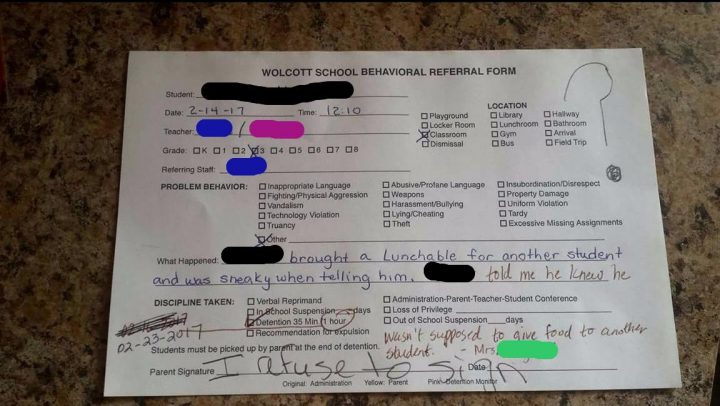 WOLCOTT SCHOOL BEHAVIORAL REFERRAL FORM
Student:
Date: 2-14-17 Time: 12:10
Teacher: /
Grade: K 1 2 3 4 5 6 7 8
Referring Staff:
LOCATION
Playground Library Hallway
Locker Room Lunchroom Bathroom
Classroom Gym Arrival
Dismissal Bus Field Trip
PROBLEM BEHAVIOR: Inappropriate Language Abusive/Profane Language Insubordination/Disrespect
Fighting/Physical Aggression Weapons Property Damage
Vandalism Harassment/Bullying Uniform Violation
Technology Violation Lying/Cheating Tardy
Truancy Theft Excessive Missing Assignments
Other
What Happened: brought a Lunchable for another student
and was sneaky when telling him. told me he knew he
DISCIPLINE TAKEN: Verbal Reprimand Administration-Parent-Teacher-Student Conference
In School Suspension days Loss of Privilege
Detention 35 Min / 1 hour Out of School Suspension days
02-23-2017 Recommendation for expulsion wasn't supposed to give food to another
Students must be picked up by parent at the end of detention. student. - Mrs.
Parent Signature I refuse to sign Date
Original: Administration Yellow: Parent Pink: Detention Monitor